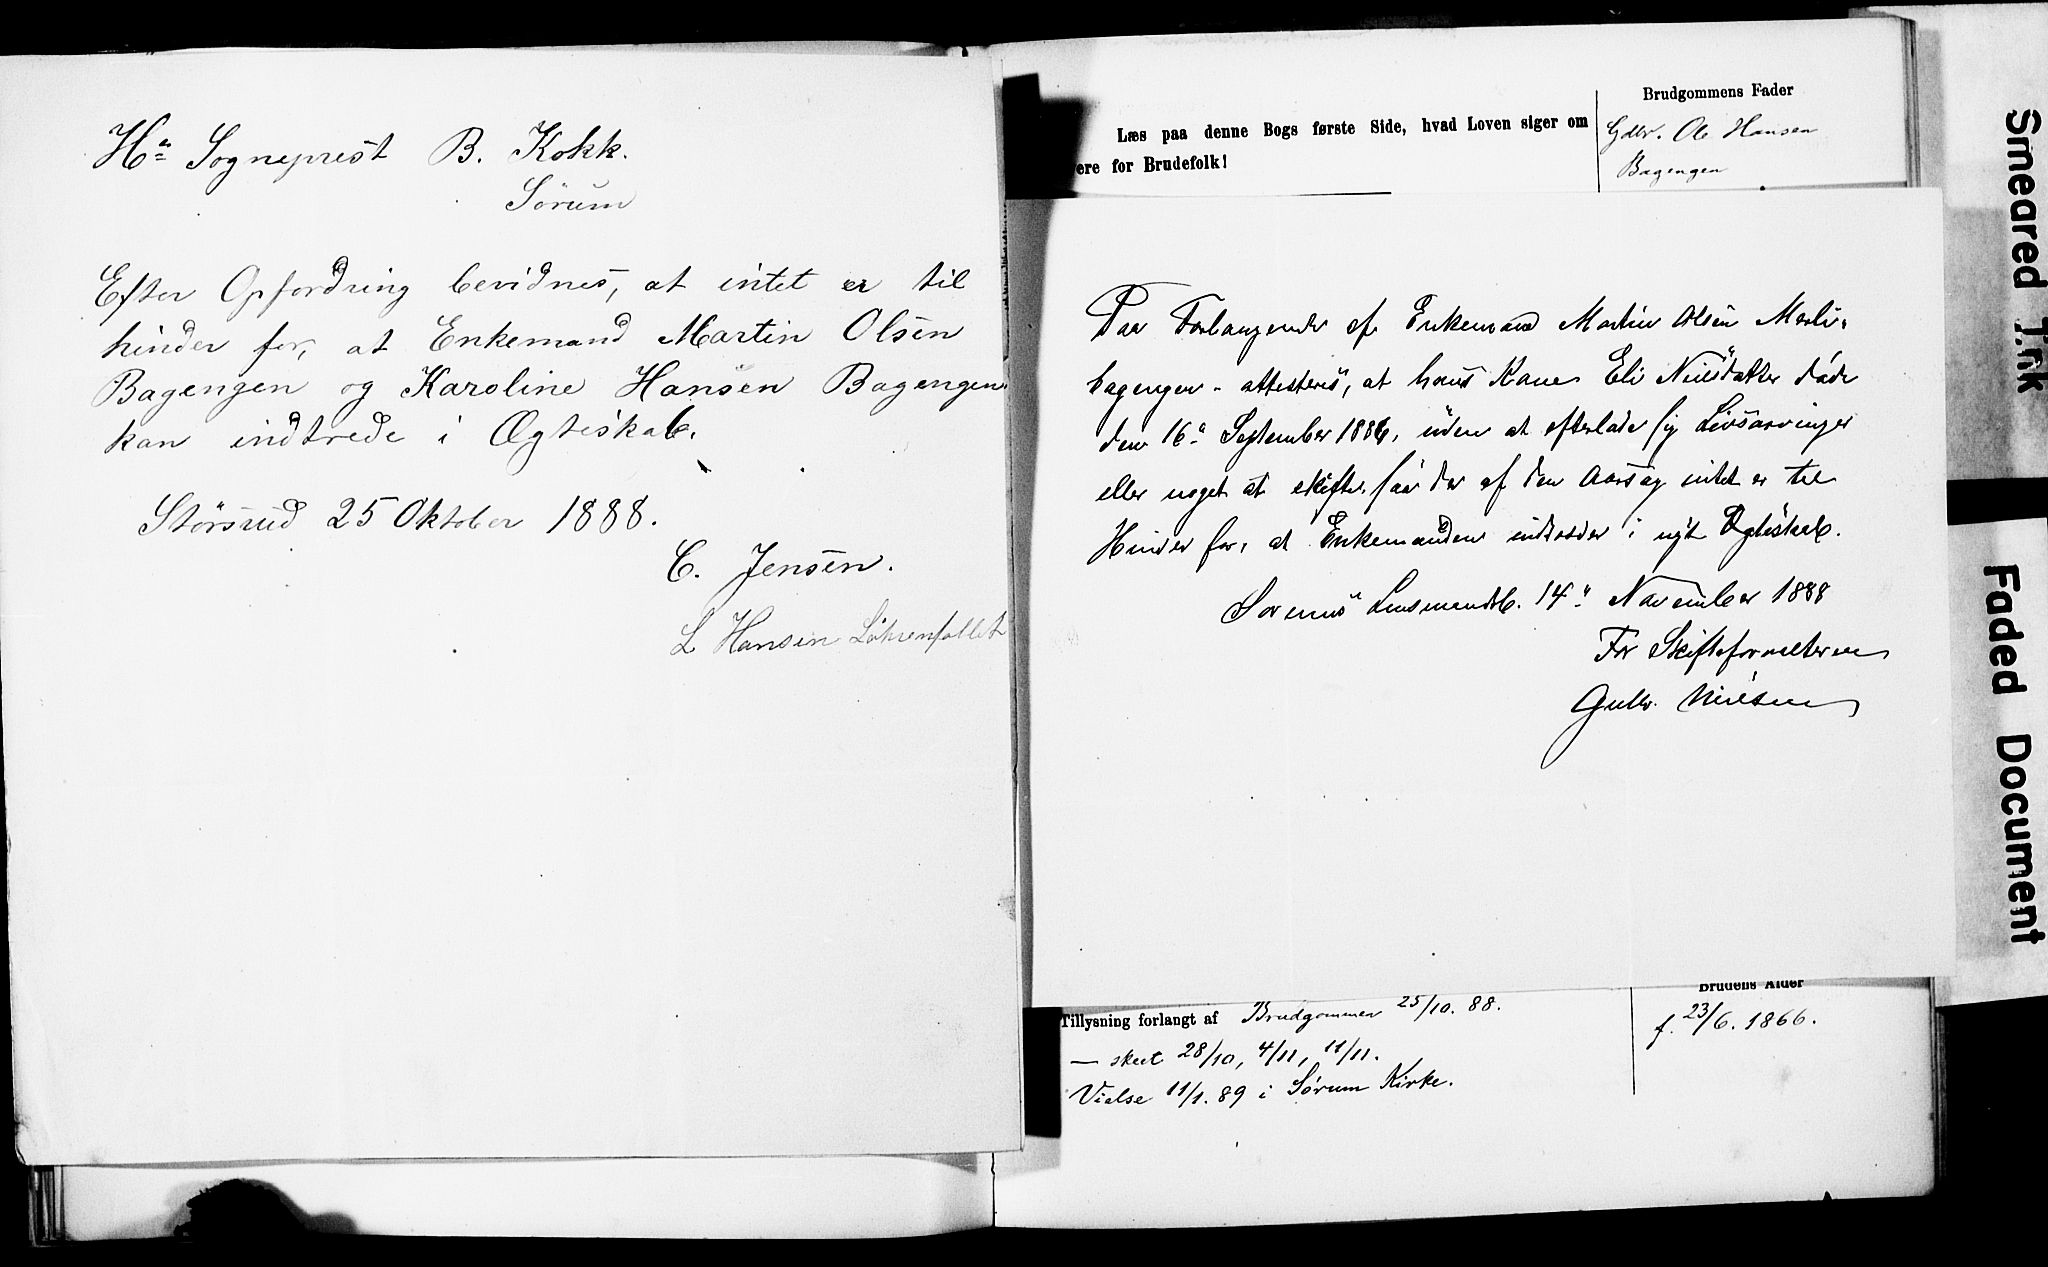 Hr Sogneprest B. Kokk.
Sørum
Efter Opfordring bevidnes, at intet er til
hinder for, at Enkemand Martin Olsen
Bagengen og Karoline Hansen Bagengen
kan indtrede i Ægteskab.
Størsrud 25 Oktober 1888.
C. Jensen.
L Hansen
Læs paa denne Bogs første Side, hvad Loven siger om
ere for Brudefolk!
Brudgommens Fader
Gdbr. Ole Hansen
Bagengen
Paa Forlangende af Enkemand Martin Olsen Mœli-
bagengen - attesteres, at hans Kone Eli Nilsdatter døde
den 16de September 1886, uden at efterlade sig Livsarvinger
eller noget at skifte, saa der af den Aarsag intet er til
Hinder for, at Enkemanden indtræder i nyt Egteskab.
Sørums Lensmandsb. 14de November 1888
For Skifteforvalteren
Gulbr. Nielsen
Tillysning forlangt af Brudgommen 25/10. 88.
— skeet 28/10, 4/11, 11/11.
Vielse 11/1. 89 i Sørum Kirke.
Brudens Alder
f. 23/6. 1866.
Smeared Ink
Faded Document